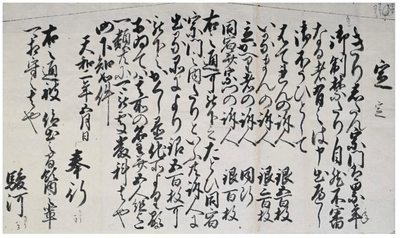 定
定
きりしたん宗門は累年
御制禁たり自然不審
なる者有之は申出へし
御ほうひとして
はてれんの訴人 銀五百枚
いるまんの訴人 銀三百枚
立かへり者の訴人 同断
同宿并宗門の訴人 銀百枚
右之通可被下之たとひ同宿
宗門之内たりといふとも訴人に
出る品により銀五百枚可
被下之かくし置他所よりあらはるゝに
おゐては其所の名主并五人組迄
一類共可被処厳科者也
仍下知如件
天和二年五月日
奉行
右之通被 仰出之旨領内之輩
可相守者也
駿河